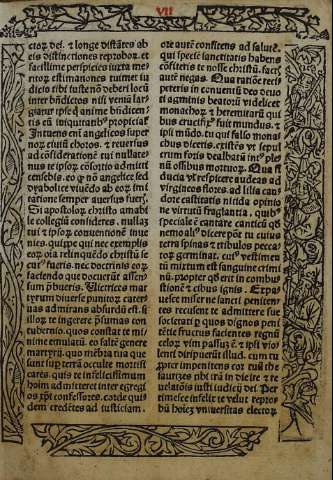 VII
ctor dei. ⁊ longe distātes ab
eis distinctiones reprobor. et
facillime perspicies iuxta me-
ritor estimationem tuimet iu
dicio tibi fuisse nō deberi locū
inter bn̄dictos nisi venia lar-
giatur ipse q̄ animē bn̄dicti o-
nis cū iniquitatib⁹ propiciat
Intuens em̄ angelicos super
nor ciuiū choros. ⁊ reuersus
ad cōsideratiōē tui nullate
nus te ipsor cōsortio admitti
censebis. eo q̄ nō angelice sed
dyabolice viuēdo ab eor imi
ratione semper auersus fueris.
Si apostolor christo amabi
le collegiū consideres. nullaz
tui ⁊ ipsor conuentionē intu
nies. quippe qui nec exemplis
eor oīa relinquēdo christū se
cut⁹ fueris. nec doctrinis eor
faciendo que docuerūt assen
sum p̄bueris. Uictrices mar
tyrum diuerse punitor cater
uas admirans absurdū est. si
illor te ingerere p̄sumas con
tubernio. quos constat te mi
nime emulatū. eo saltē genere
martyrii. quo mēbra tua que
sunt sup terrā occulte mortifi
cares. quis te infelicissimum
hoim admitteret inter egregi
os xp̄i confessores. corde qui-
dem credētes ad iusticiam.
ore autē confitens ad salutē.
qui specie sanctitatis habens
cōfiteris te nosse christū. factis
autē negas. Qua ratōe reci-
piereris in conuentū deo deuo
ti agminis beator videlicet
monachor. ⁊ heremitarū qui
bus crucifix⁹ fuit mundus. ⁊
ipsi mūdo. tu qui falso mona
chus diceris. existēs vt sepul
crum foris dealbatū int⁹ ple
nū ossibus mortuor. Qua fi
ducia vel respicere audeas ad
virgineos flores. ad lilia can
dore castitatis nitida opinio
ne virtutū fragrantia. quib⁹
speciale ⁊ cantate canticū q̄si
nemoli⁹ dicere pōt tu cuius
terra spinas ⁊ tribulos pecca
tor germinat. cui⁹ vestimen
tū mixtum est sanguine crimi
nū. propter qd̄ erit in combusti
onē ⁊ cibus ignis. Expa
uesce miser ne sancti peniten-
tes recusent te admittere sue
societati. quos dignos peni
tētie fructus facientes regnū
celor vim passuz ē. ⁊ ipsi vio
lenti diripuerūt illud. cum tu
ppter impenitens cor tuū the
saurizes tibi irā in die ire ⁊ re
uelatiōis iusti iudicii dei. Per
timesce infelix te velut repro-
bū hoiez vniuersitas elector